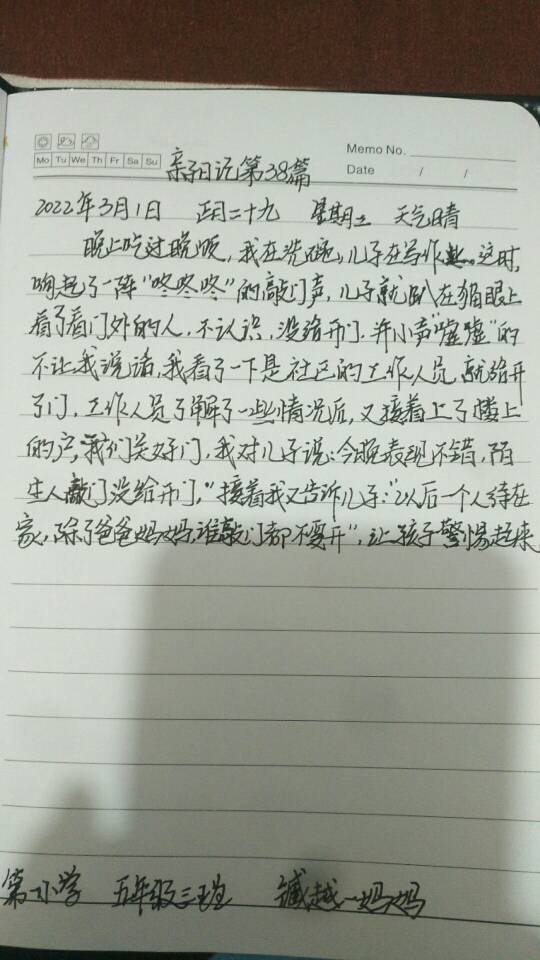 Memo No.
Mo Tu We Th Fr Sa Su
Date / /
亲子日记第38篇
2022年3月1日 正月二十九 星期二 天气晴
晚上吃过晚饭，我在洗碗，儿子在写作业。这时，
响起了一阵“咚咚咚”的敲门声，儿子就趴在猫眼上
看了看门外的人，不认识，没给开门，并小声“嘘嘘”的
不让我说话，我看了一下是社区的工作人员，就给开
了门，工作人员了解了一些情况后，又接着上了楼上
的户，我们关好门，我对儿子说：今晚表现不错，陌
生人敲门没给开门，”接着我又告诉儿子：“以后一个人待在
家，除了爸爸妈妈，谁敲门都不要开”，让孩子警惕起来
第一小学 五年级三班 越一妈妈